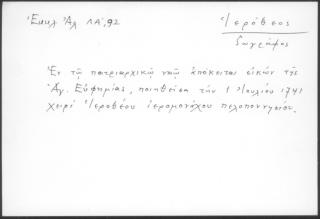 Ἐκκλ Ἀλ ΛΑ', 92
Ἱερόθεος
ζωγράφος
Ἐν τῷ πατριαρχικῷ ναῷ ἀπόκειται εἰκών τῆς
Ἁγ. Εὐφημίας, ποιηθεῖσα τήν 1 Ἰουλίου 1741
χειρί Ἱεροθέου ἱερομονάχου πελοποννησίου.